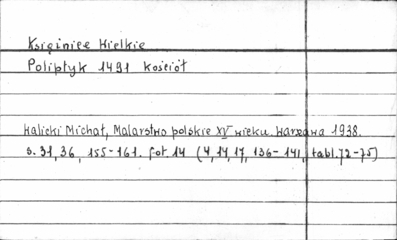 Książnice Wielkie
Poliptyk 1491 kościół
Walicki Michał, Malarstwo polskie XV wieku. Warszawa 1938.
s. 31, 36, 155-161. fot 14 (4, 14, 17, 136-141, tabl. 72-75)